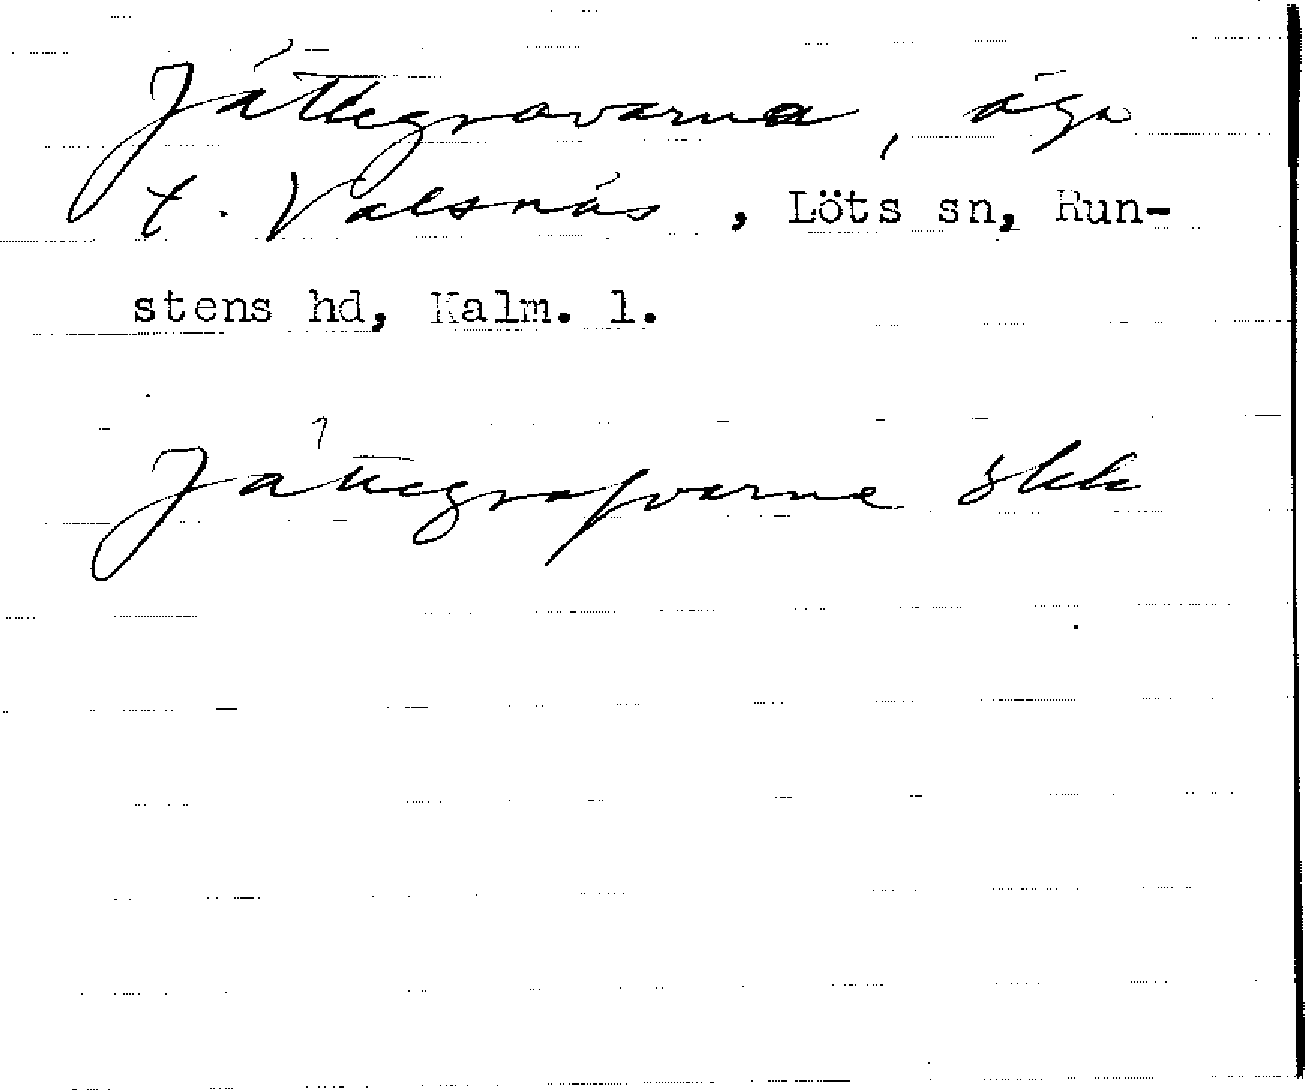 Jättegravarna, äga
t. Valsnäs, Löts sn, Run-
stens hd, Kalm. l.
Jättegrafvarne Skk